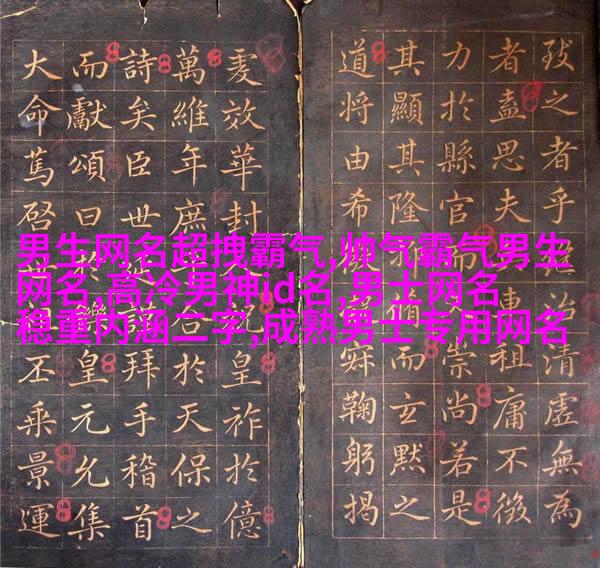 男生网名超拽霸气,帅气霸气男生
网名,高冷男神id名,男士网名
稳重内涵二字,成熟男士专用网名
之者乎治清虛無為
者盍思夫祖庸不
力於縣官而崇尚若是
其顯其隆脩而玄默之
道將由希鞠躬揭
效華封皇祚於億
萬維年庶合於天保之
詩矣臣世延拜手稽首
而獻頌曰於鑠皇元允集
大命篤啓世丕乘景運